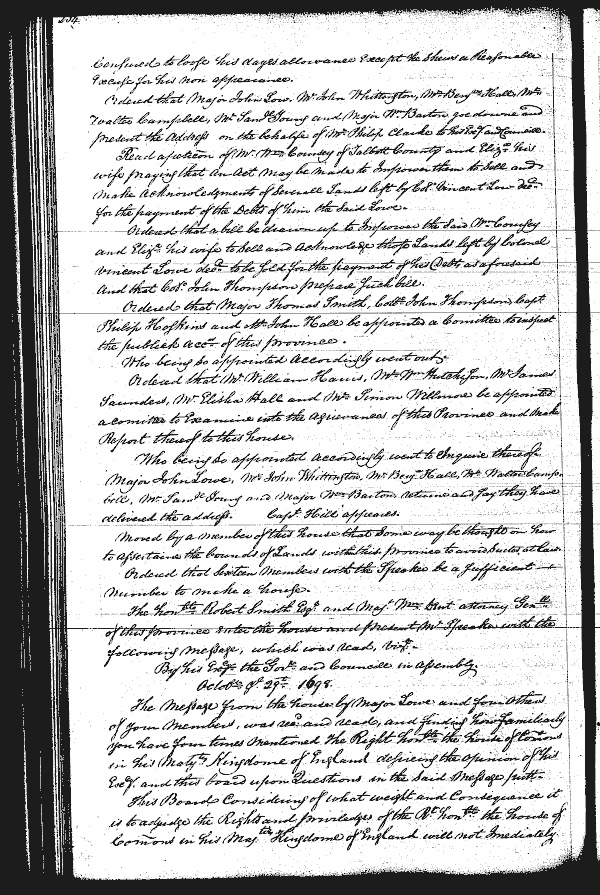 234.
Confined to loose his dayes allowance Except he shews a Reasonable
Excuse for his non appearance.
Ordered that Major John Low, Mr. John Whittington, Mr. Benjn. Hall, Mr.
Walter Campbell, Mr. Saml. Young and Major Wm. Barton goe downe and
present the Address on the behalfe of Mr. Philip Clarke to his Exy. and Councill.
Read a petition of Mr. Wm. Coursey of Talbott County and Eliza. his
wife praying that an Act may be made to Impower them to Sell and
make Acknowledgments of Severall Lands left by Col. Vincent Low decd.
for the payment of the Debts of him the Said Lowe.
Ordered that a bill be drawn up to Impower the Said Wm. Coursey
and Eliza. his wife to Sell and Acknowledge those Lands left by Colonel
Vincent Lowe decd. to be sold for the payment of his Debts as aforesaid
And that Col. John Thompson prepare such bill.
Ordered that Major Thomas Smith, Coll. John Thompson, Capt.
Philip Hopkins and Mr. John Hall be appointed a Comittee to inspect
the publick acct. of this province.
Who being so appointed accordingly went out.
Ordered that Mr. William Harris, Mr. Wm. Hutchison, Mr. James
Saunders, Mr. Elisha Hall and Mr. Simon Willmore be appointed
a comittee to Examine into the agrievances of this Province and make
Report thereof to this house.
Who being so appointed accordingly went to Enquire thereof.
Major John Lowe, Mr. John Whittington, Mr. Benj. Hall, Mr. Walter Camp-
bell, Mr. Saml. Young and Major Wm. Barton returne and say they have
delivered the address. Capt. Hill appeares.
Moved by a member of this house that some way be thought on how
to assertaine the bounds of Lands within this province to avoid suites at Law.
Ordered that Sixteen Members with the Speaker be a sufficient
number to make a house.
The honble. Robert Smith Esqr. and Maj. Wm. Dent attorney Genll.
of this province enter the house and present Mr. Speaker with the
following message, which was read, vizt.
By his Exy. the Govr. and Councill in assembly.
Octobr. ye 29th. 1698.
The Message from the house by Major Lowe and four others
of your Members, was recd. and read, and finding how familiarly
you have four times Mentioned the Right honble. the house of Comons
in his Matys. Kingdome of England desiering the opinion of his
Exey. and this board upon Questions in the said Message putt.
This Board Considering of what weight and Consequence it
is to adjudge the Rights and priviledges of the Rt. honble. the house of
Comons in his Majtys. Kingdome of England will not Imediately